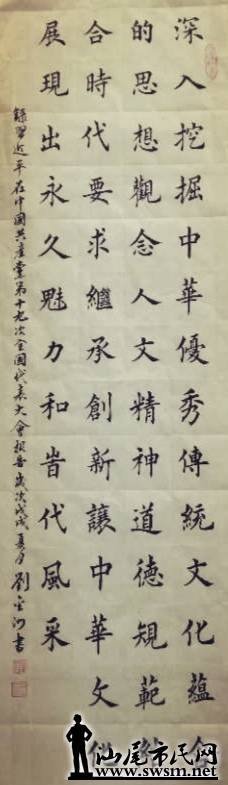 深入挖掘中華優秀傳統文化蘊含
的思想觀念人文精神道德規範結
合時代要求繼承創新讓中華文化
展現出永久魅力和旹代風采
錄習近平在中國共產黨第十九次全國代表大會報告歲次戊戌夏月劉河書
汕尾市民网
www.swsm.net